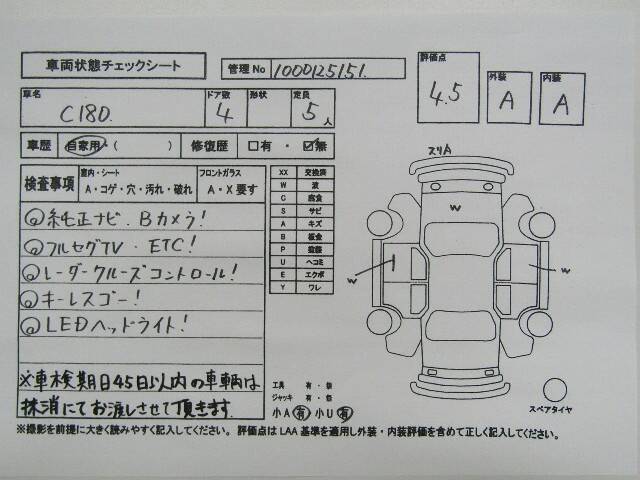 車両状態チェックシート
管理No 1000125151.
評価点 4.5
外装 A
内装 A
車名 C180.
ドア数 4
形状
定員 5人
車歴 自家用・( )
修復歴 □有・☑無
検査事項
室内・シート A・コゲ・穴・汚れ・破れ
フロントガラス A・X要す
純正ナビ.Bカメラ!
フルセグTV・ETC!
レーダークルーズコントロール!
キーレスゴー!
LEDヘッドライト!
※車検期日45日以内の車輌は
抹消にてお渡しさせて頂きます.
XX 交換済
W 波
C 腐食
S サビ
A キズ
B 板金
P 塗装
U ヘコミ
E エクボ
Y ワレ
スリA
w
w
w
工具 有・無
ジャッキ 有・無
小A有 小U有
スペアタイヤ
※撮影を前提に大きく読みやすく記入してください。 評価点はLAA基準を適用し外装・内装評価を含めて正しく記入してください。